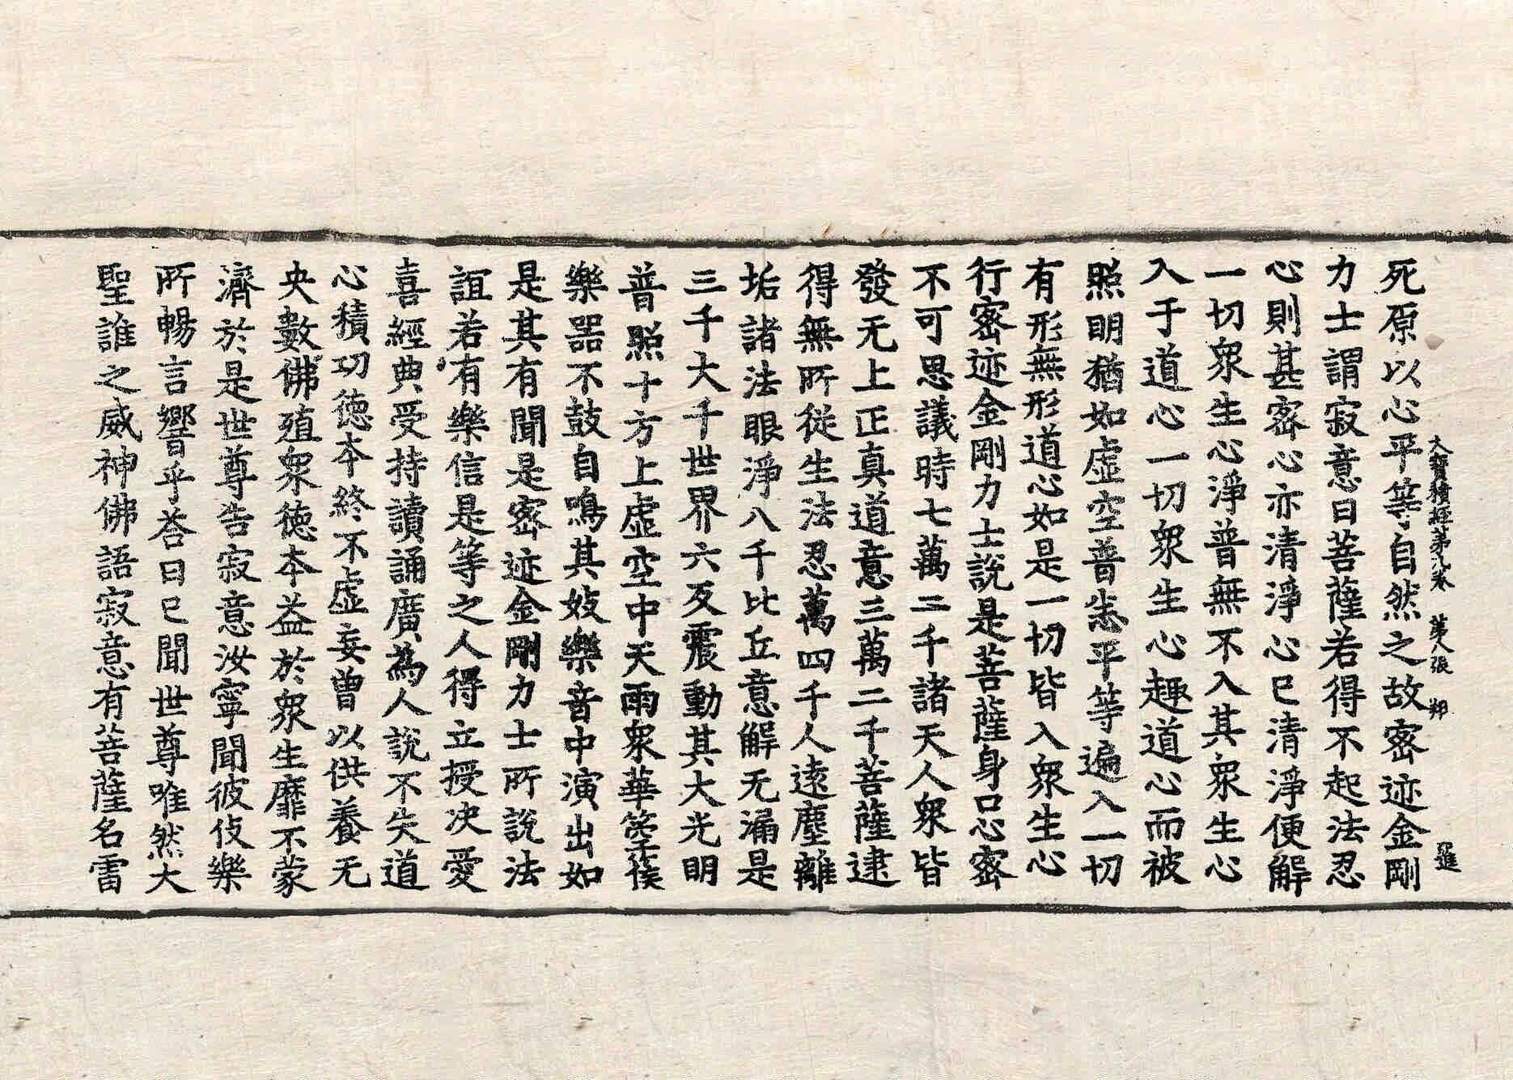 死原以心平等自然之故密迹金剛
大寶積經第九卷 第八張 鄭 羅
力士謂寂意曰菩薩若得不起法忍
心則甚密心亦清淨心已清淨便解
一切衆生心淨普無不入其衆生心
入于道心一切衆生心趣道心而被
照明猶如虛空普悉平等遍入一切
有形無形道心如是一切皆入衆生心
行密迹金剛力士說是菩薩身口心密
不可思議時七萬二千諸天人衆皆
發无上正真道意三萬二千菩薩逮
得無所從生法忍萬四千人遠塵離
垢諸法眼淨八千比丘意解无漏是
三千大千世界六反震動其大光明
普照十方上虛空中天雨衆華箜篌
樂器不鼓自鳴其妓樂音中演出如
是其有聞是密迹金剛力士所說法
誼若有樂信是等之人得立授决愛
喜經典受持讀誦廣為人說不失道
心積功德本終不虛妄曾以供養无
央數佛殖衆德本益於衆生靡不蒙
濟於是世尊告寂意汝寧聞彼伎樂
所暢言響乎荅曰已聞世尊唯然大
聖誰之威神佛語寂意有菩薩名雷